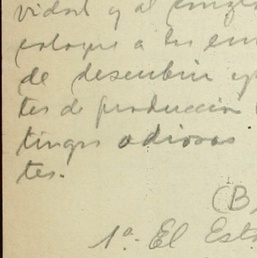 vidad y al
coloque a los
de descubrir
tes de producción
tingos odiosos
tes.
(B.
1ª. El Est